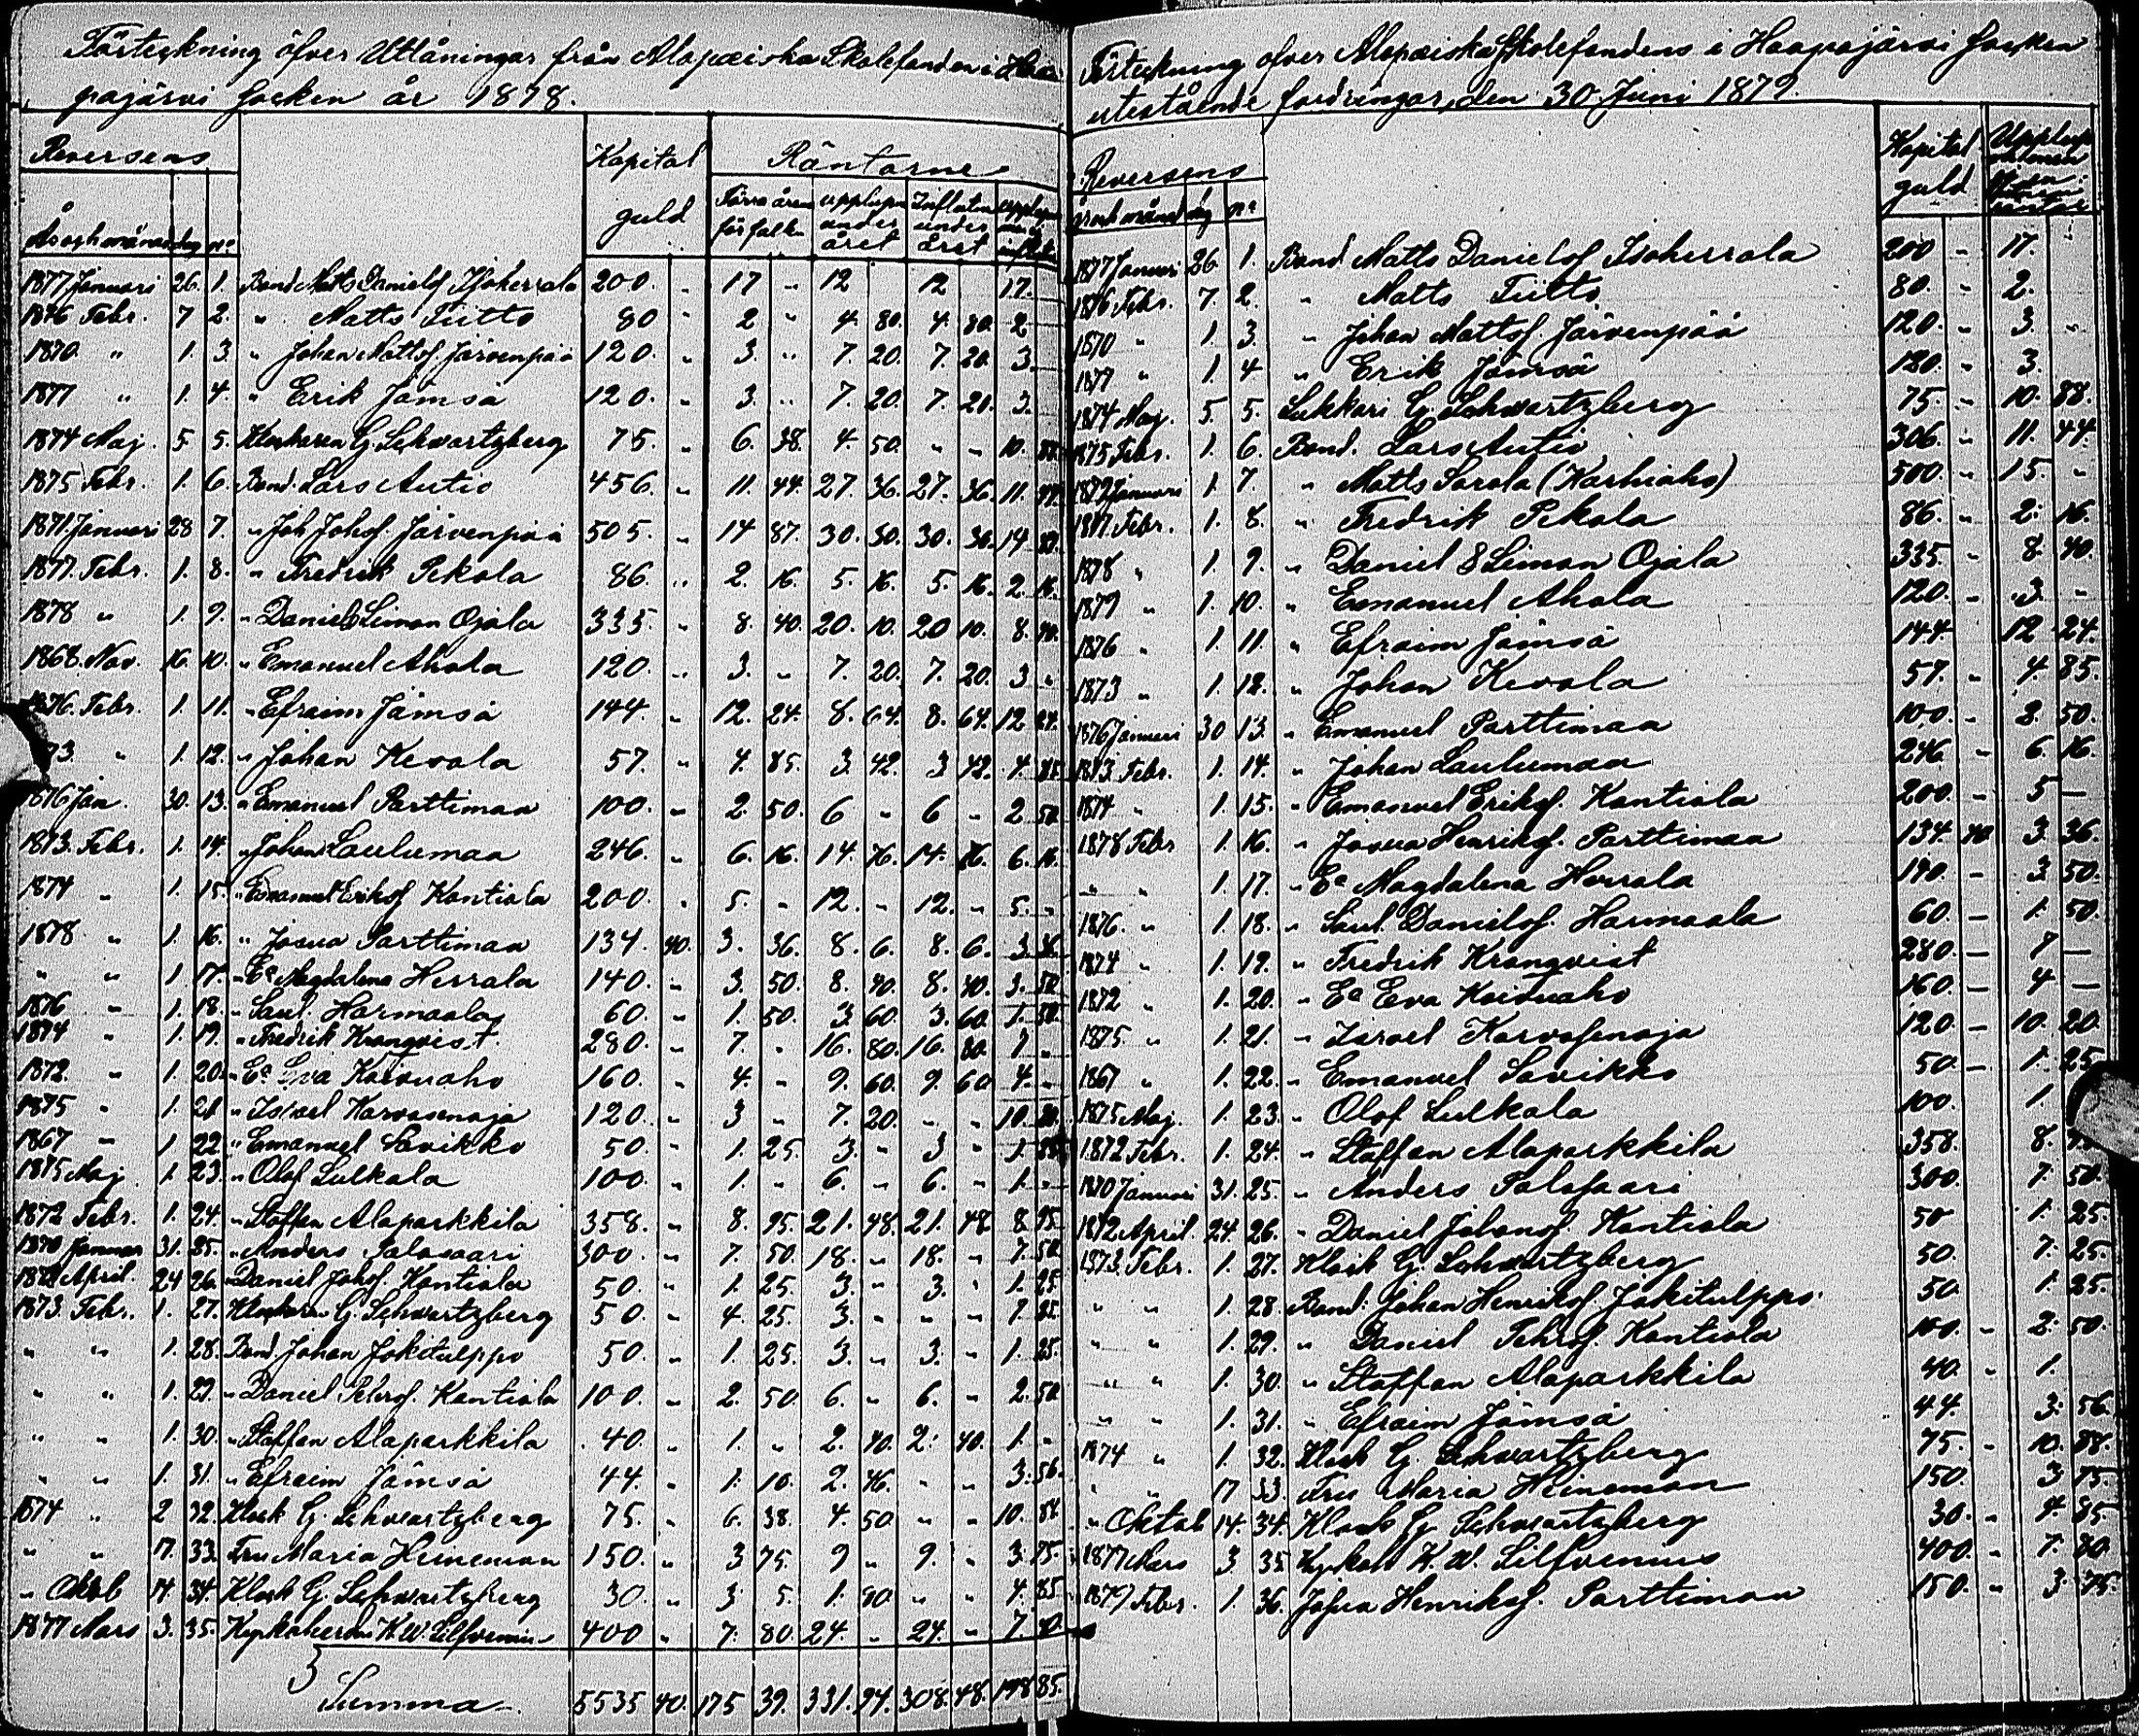 Förteckning öfver Utlåningar från Alapæiska Skolefonden i Haa
pajärvi Socken år 1878.
Reversens Kapital Räntorne
År och månad dag nº guld Förra åren förfallt. upplupn under året Influtna under året
1877 Januari 26. 1. Bond Matts Danielsf Isoherrala 200. " 17 " 12 12 17.
1876 Febr. 7 2. " Matts Tiitto 80 " 2 " 4. 80. 4. 80. 2
1870 " 1. 3 " Johan Mattsf. Järvenpää 120. " 3. " 7. 20. 7. 20. 3.
1877 " 1. 4. " Erik Jämsä 120. " 3. " 7. 20. 7. 20. 3.
1874 Maj. 5 5. Klockaren G. Schwartzberg 75. " 6. 38. 4. 50. " " 10. 88.
1875 Febr. 1. 6. Bond. Lars Autio 456. " 11. 44. 27. 36. 27. 36. 11. 44.
1871. Januari 28 7. " Joh Johsf. Järvenpää 505. " 14 87. 30. 30. 30. 30. 14 87.
1877. Febr. 1. 8. " Fredrik Pekola 86. " 2. 16. 5. 16. 5. 16. 2. 16.
1878 " 1. 9. " Daniel & Simon Ojala 335. " 8. 40. 20. 10. 20 10. 8. 40.
1868. Nov. 16 10. " Emanuel Ahola 120. " 3. " 7. 20. 7. 20. 3 "
1876. Febr. 1. 11. " Efraim Jämsä 144. " 12. 24. 8. 64. 8. 64. 12 24.
73. " 1. 12. " Johan Kevola 57. " 4. 85. 3. 42. 3 42. 4. 85.
1876 Jan. 30. 13. " Emanuel Parttimaa 100. " 2. 50. 6 " 6 " 2 50.
1873. Febr. 1. 14. " Johan Laulumaa 246. " 6. 16. 14. 76. 14. 76. 6. 16.
1874 " 1. 15. " Emanuel Eriksf Kantiola 200. " 5. " 12. " 12. " 5. "
1878 " 1. 16. " Josua Parttimaa 134. 40. 3. 36. 8. 6. 8. 6. 3 36.
" " 1 17. " Eª Magdalena Herrala 140. " 3. 50. 8. 40. 8. 40. 3. 50.
1876 " 1. 18. " Saul. Harmaala 60. " 1. 50. 3 60. 3. 60. 1. 50.
1874 " 1. 19. " Fredrik Kranqvist 280. " 7. " 16. 80. 16. 80. 7 "
1872 " 1. 20. " Eª Eva Koivuaho 160. " 4. " 9. 60. 9. 60 4. "
1875 " 1. 21. " Israel Karvasenoja 120. " 3 " 7. 20. " " 10 20.
1867 " 1 22. " Emanuel Savikko 50. " 1. 25. 3. " 3 " 1. 25.
1875 Maj. 1. 23. " Olof Sulkala 100. " 1. " 6. " 6. " 1. "
1872 Febr. 1. 24. " Staffan Alaparkkila 358. " 8. 95. 21. 48. 21. 48 8. 95.
1870 Januar 31. 25. " Anders Salosaari 300. " 7. 50. 18. " 18. " 7. 50.
1872 April. 24 26. " Daniel Johsf. Kantiola 50. " 1. 25. 3. " 3. " 1. 25
1873. Febr. 1. 27. Klockaren G. Schwartzberg 50. " 4. 25. 3. " " " 7. 25.
" " 1. 28. Bond. Johan Jokitulppo 50. " 1. 25. 3. " 3. " 1. 25.
" " 1. 29. " Daniel Pehrsf. Kantiola 100. " 2. 50. 6. " 6. " 2. 50.
" " 1. 30. " Staffan Alaparkkila 40. " 1. " 2. 40. 2. 40. 1. "
" " 1. 31. " Efraim Jämsä 44. " 1. 10. 2. 46. " " 3. 56.
1874 " 2 32. Klock G. Schwartzberg 75. " 6. 38. 4. 50 " " 10. 88.
" " 17. 33. Fru Maria Heineman 150. " 3 75. 9 " 9. " 3. 75.
" Oktob 14. 34. Klock G. Schwartzberg 30. " 3 5. 1. 80. " " 4. 85.
1877 Mars 3. 35. Kyrkoherden K. W. Silfvenius 400 " 7. 80 24. " 24. " 7. 80.
Summa 5535 40. 175 39. 331. 94. 308. 48. 198 85.
Förteckning öfver Alapæiska Skolefondens i Haapajärvi Socken
utestående fordringar, den 30 Juni 1879.
Reversens Kapital
år och månad dag nº guld
1877 Januari 26. 1. Bond Matts Danielsf Isoherrala 200 " 17. "
1876 Febr. 7. 2. " Matts Tiitto 80. " 2.
1870 " 1. 3. " Johan Mattsf. Järvenpää 120. " 3. "
1877 " 1. 4 " Erik Jämsä 120. " 3.
1874 Maj. 5 5. Lukkari G. Schwartzberg 75. " 10. 88.
1875 Febr. 1. 6. Bond. Lars Autio 306. " 11. 44.
1879 Januari 1. 7. " Matts Sarola (Karhiaho) 500. " 15. "
1877. Febr. 1. 8. " Fredrik Pekola 86. " 2. 16.
1878 " 1. 9. " Daniel & Simon Ojala 335. " 8. 40.
1879 " 1. 10. " Emanuel Ahola 120. " 3. "
1876 " 1. 11. " Efraim Jämsä 144 " 12 24.
1873 " 1. 12. " Johan Kevola 57. " 4. 85.
1876 Januari 30 13. " Emanuel Parttimaa 100. " 2. 50.
1873. Febr. 1. 14. " Johan Laulumaa 246 " 6. 16.
1874 " 1. 15. " Emanuel Eriksf. Kantiola 200. " 5 —
1878 Febr 1. 16. " Josua Henriksf. Parttimaa 134. 40 3. 36.
" " 1. 17. " Eª Magdalena Herrala 140. — 3 50.
1876. " 1. 18. " Saul. Danielsf. Harmaala 60. — 1. 50.
1874 " 1. 19. " Fredrik Kranqvist 280. — 7 —
1872 " 1. 20. " Eª Eva Koivuaho 160. — 4 —
1875. " 1. 21. " Israel Karvasenoja 120. — 10. 20.
1867 " 1. 22. " Emanuel Savikko 50. — 1. 25
1875 Maj. 1. 23. " Olof Sulkala 100. 1.
1872 Febr. 1. 24. " Staffan Alaparkkila 358. 8.
1870 Januari 31. 25. " Anders Salosaari 300. 7. 50.
1872 April. 24. 26. " Daniel Johansf. Kantiola 50 1. 25.
1873. Febr. 1. 27. Klock G. Schwartzberg 50. 7. 25.
" " 1. 28 Bond. Johan Henriksf. Jokitulppo. 50. 1. 25.
" " 1. 29. " Daniel Pehrsf. Kantiola 100. " 2. 50.
" " 1. 30. " Staffan Alaparkkila 40. " 1.
" " 1. 31. " Efraim Jämsä 44. 3. 56.
1874 " 1. 32. Klock G. Schwartzberg 75. " 10. 88.
" " 17 33. Fru Maria Heineman 150. 3 75.
" Oktob 14. 34. Klock G. Schwartzberg 30. " 4. 85.
1877 Mars 3 35. Kyrkoh K. W. Silfvenius 400. " 7. 80.
1879 Febr. 1. 36. Josua Henriksf. Parttimaa 150. " 3. 75.